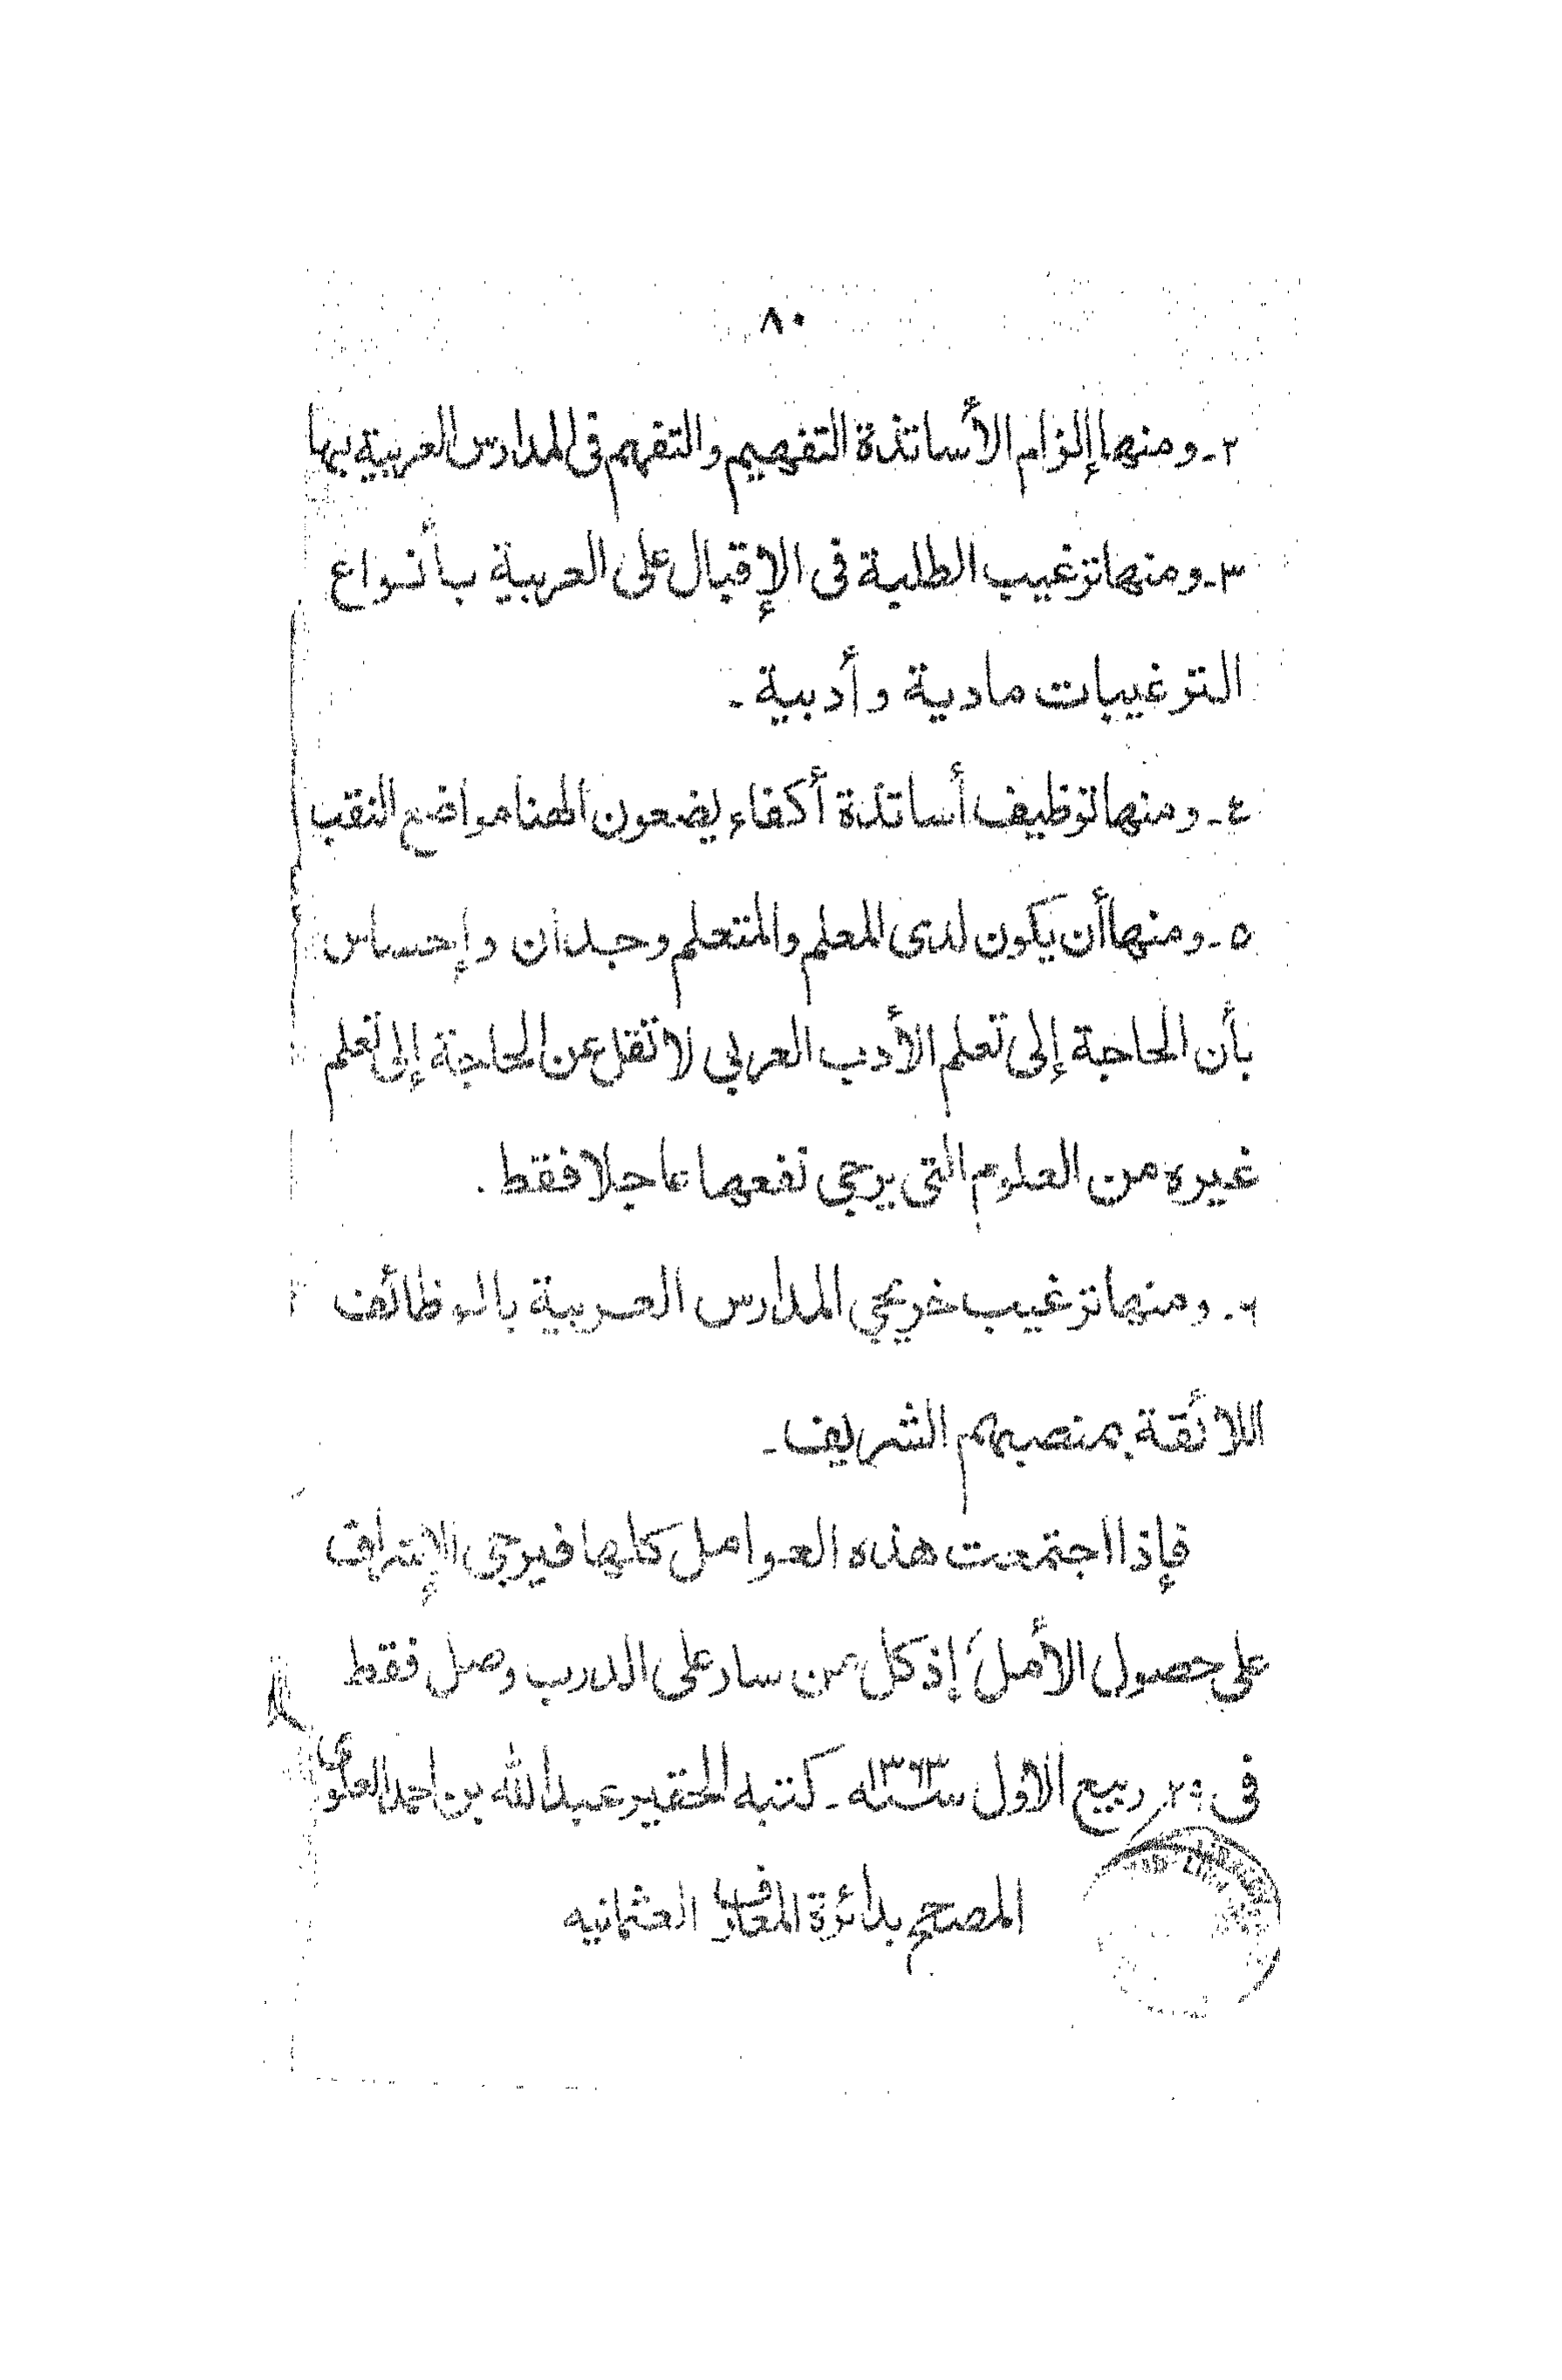 ٨٠
٢ـ ومنها إلزام الأساتذة التفهيم والتفهم فى المدارس العربية بها
٣ـ ومنها ترغيب الطلبة فى الإقبال على العربية بأنواع
الترغيبات مادية وأدبية ـ
٤ـ ومنها توظيف أساتذة أكفاء يضعون الهنا مواضع النقب
٥ـ ومنها أن يكون لدى المعلم والمتعلم وجدان وإحساس
بأن الحاجة إلى تعلم الأدب العربي لا تقل عن الحاجة إلى تعلم
غيره من العلوم التى يرجى نفعها عاجلا فقط .
٦ـ ومنها ترغيب خريجي المدارس العربية بالوظائف
اللائقة بمنصبهم الشريف ـ
فإذا اجتمعت هذه العوامل كلها فيرجى
على حصول الأمل، إذ كل من سار على الدرب وصل فقط
فى ٢٩ ربيع الاول سنة ١٣٦٣ه ـ كتبه الحقير عبدالله بن احمد العلوى
المصحح بدائرة المعارف العثمانيه